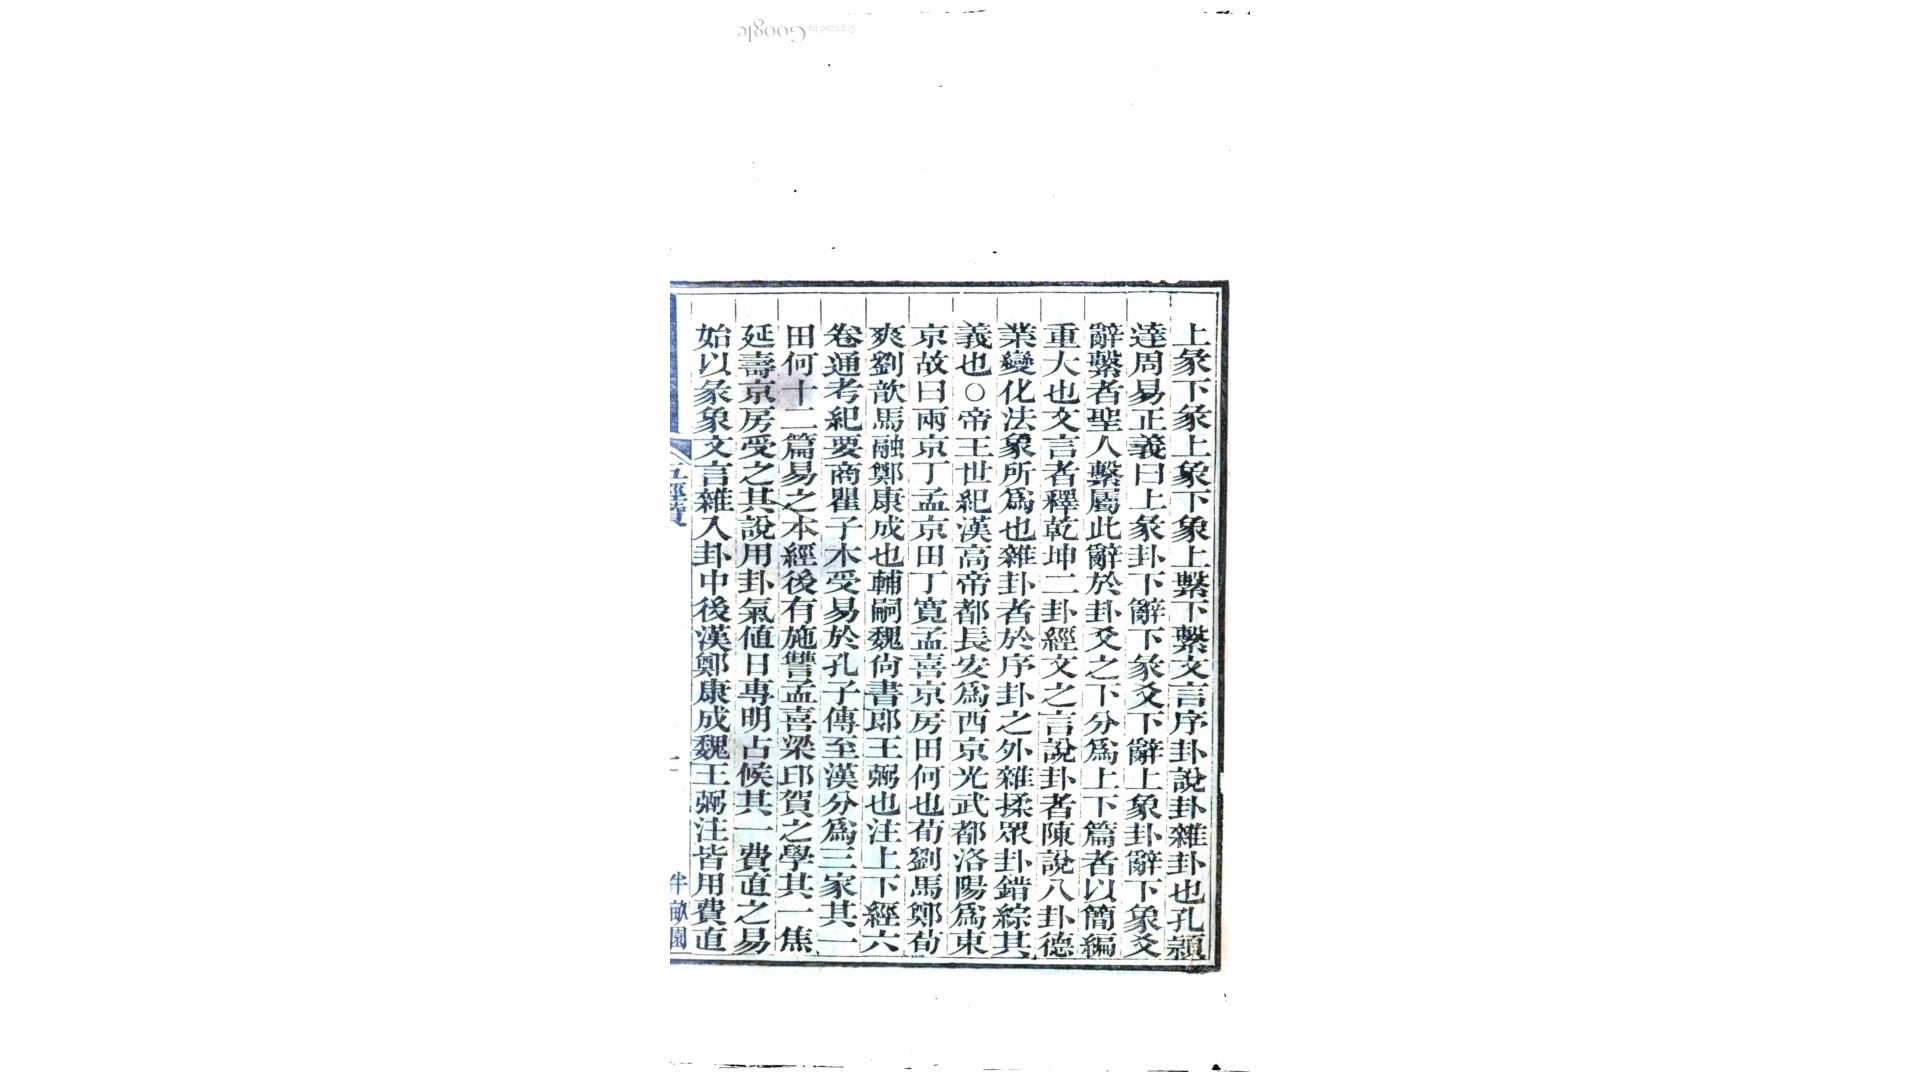 上彖下彖上象下象上繫下繫文言序卦說卦雜卦也孔穎
達周易正義曰上彖卦下辭下彖爻下辭上象卦辭下象爻
辭繫者聖人繫屬此辭於卦爻之下分爲上下篇者以簡編
重大也文言者釋乾坤二卦經文之言說卦者陳說八卦德
業變化法象所爲也雜卦者於序卦之外雜揉眾卦錯綜其
義也○帝王世紀漢高帝都長安爲西京光武都洛陽爲東
京故曰兩京丁孟京田丁寬孟喜京房田何也荀劉馬鄭荀
爽劉歆馬融鄭康成也輔嗣魏尙書郎王弼也注上下經六
卷通考紀要商瞿子木受易於孔子傳至漢分爲三家其一
田何十二篇易之本經後有施讐孟喜梁邱賀之學其一焦
延壽京房受之其說用卦氣値日專明占候其一費直之易
始以彖象文言雜入卦中後漢鄭康成魏王弼注皆用費直
五經贊
半畝園
Digitized by Google